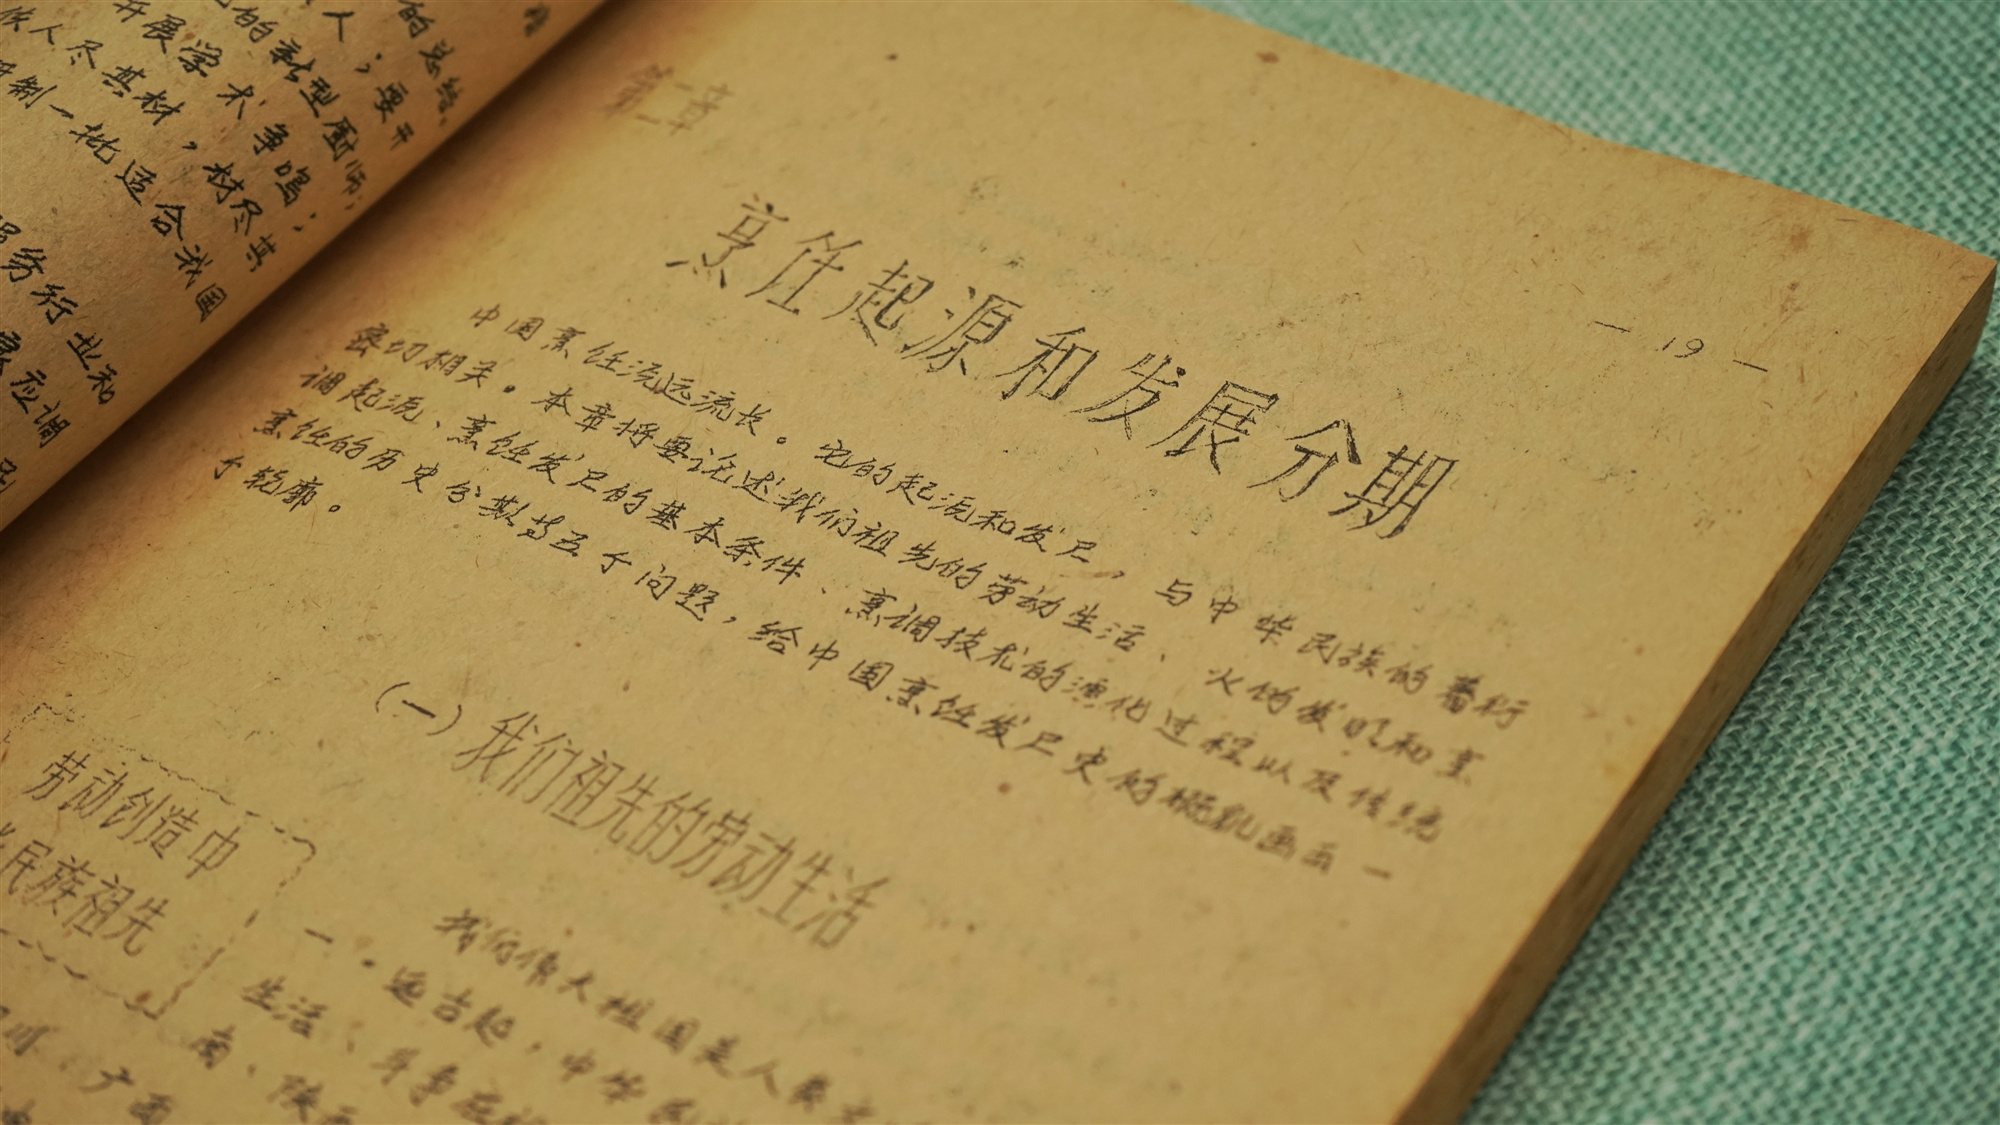 的总结。
人；要开
的新型厨师；
开展学术争鸣；
人尽其材，材尽其
制一批适合我国
行业和
应调
— 19 —
第二章
烹饪起源和发展分期
中国烹饪流远流长。它的起源和发尸，与中华民族的蕃衍
密切相关。本章将要论述我们祖先的劳动生活、火的发明和烹
调起源、烹饪发尸的基本条件、烹调技术的演化过程以及传统
烹饪的历史分期等五个问题，给中国烹饪发尸史的概貌画出一
个轮廓。
(一)我们祖先的劳动生活
劳动创造中
民族祖先
我们伟大祖国是人类
一。远古起，中华民族
生活、斗争在
南、陕西
广西